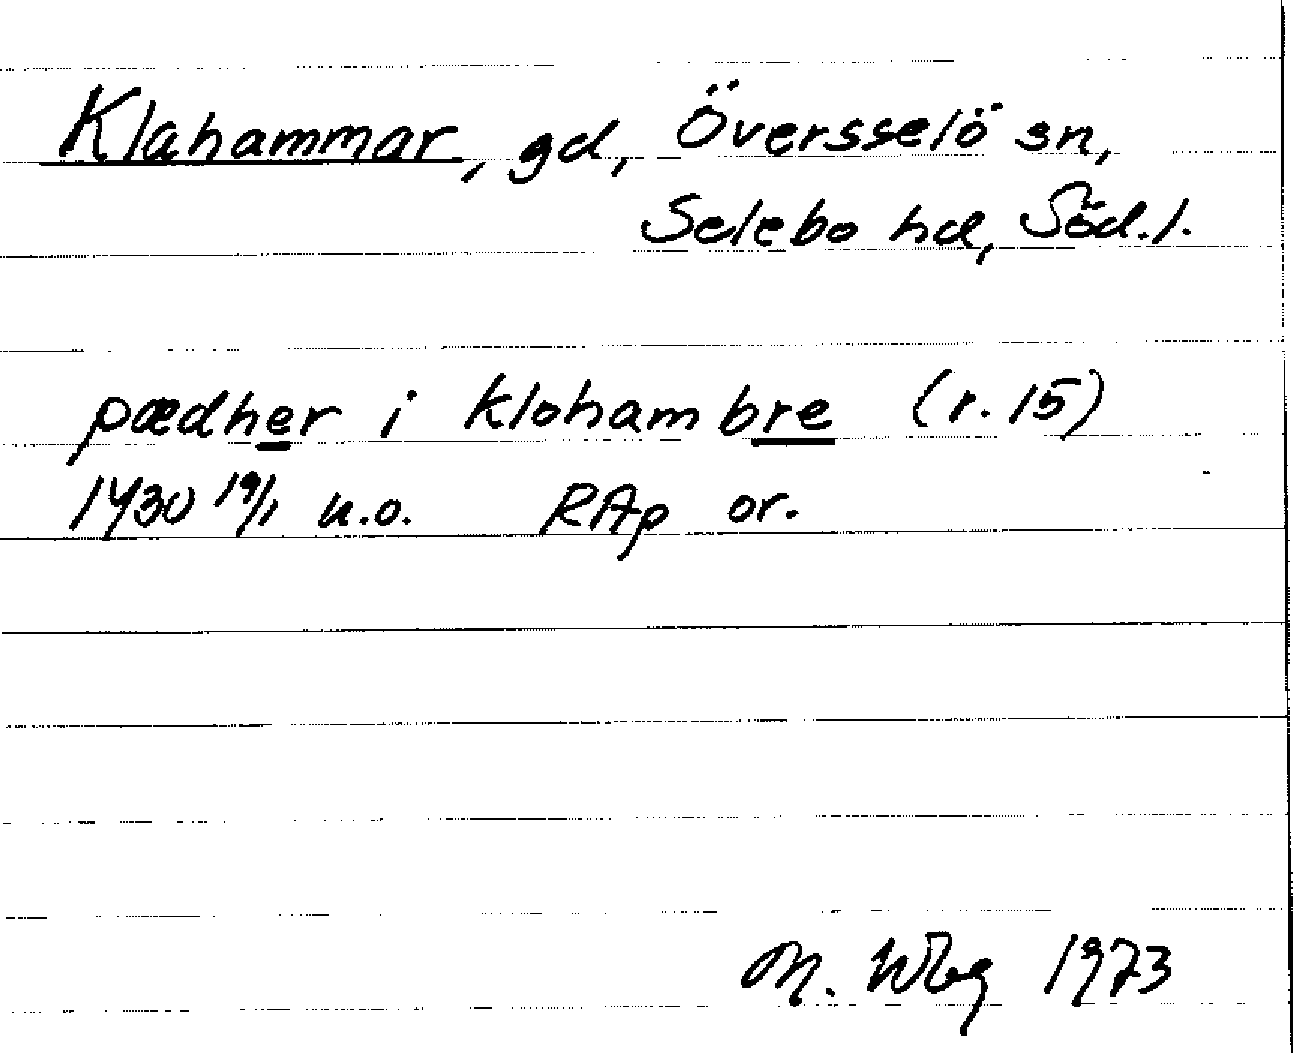 Klahammar, gd, Översselö sn,
Selebo hd, Söd.l.
pædher i klohambre (r. 15)
1430 19/1 u.o. RAp or.
M. Wbg 1973